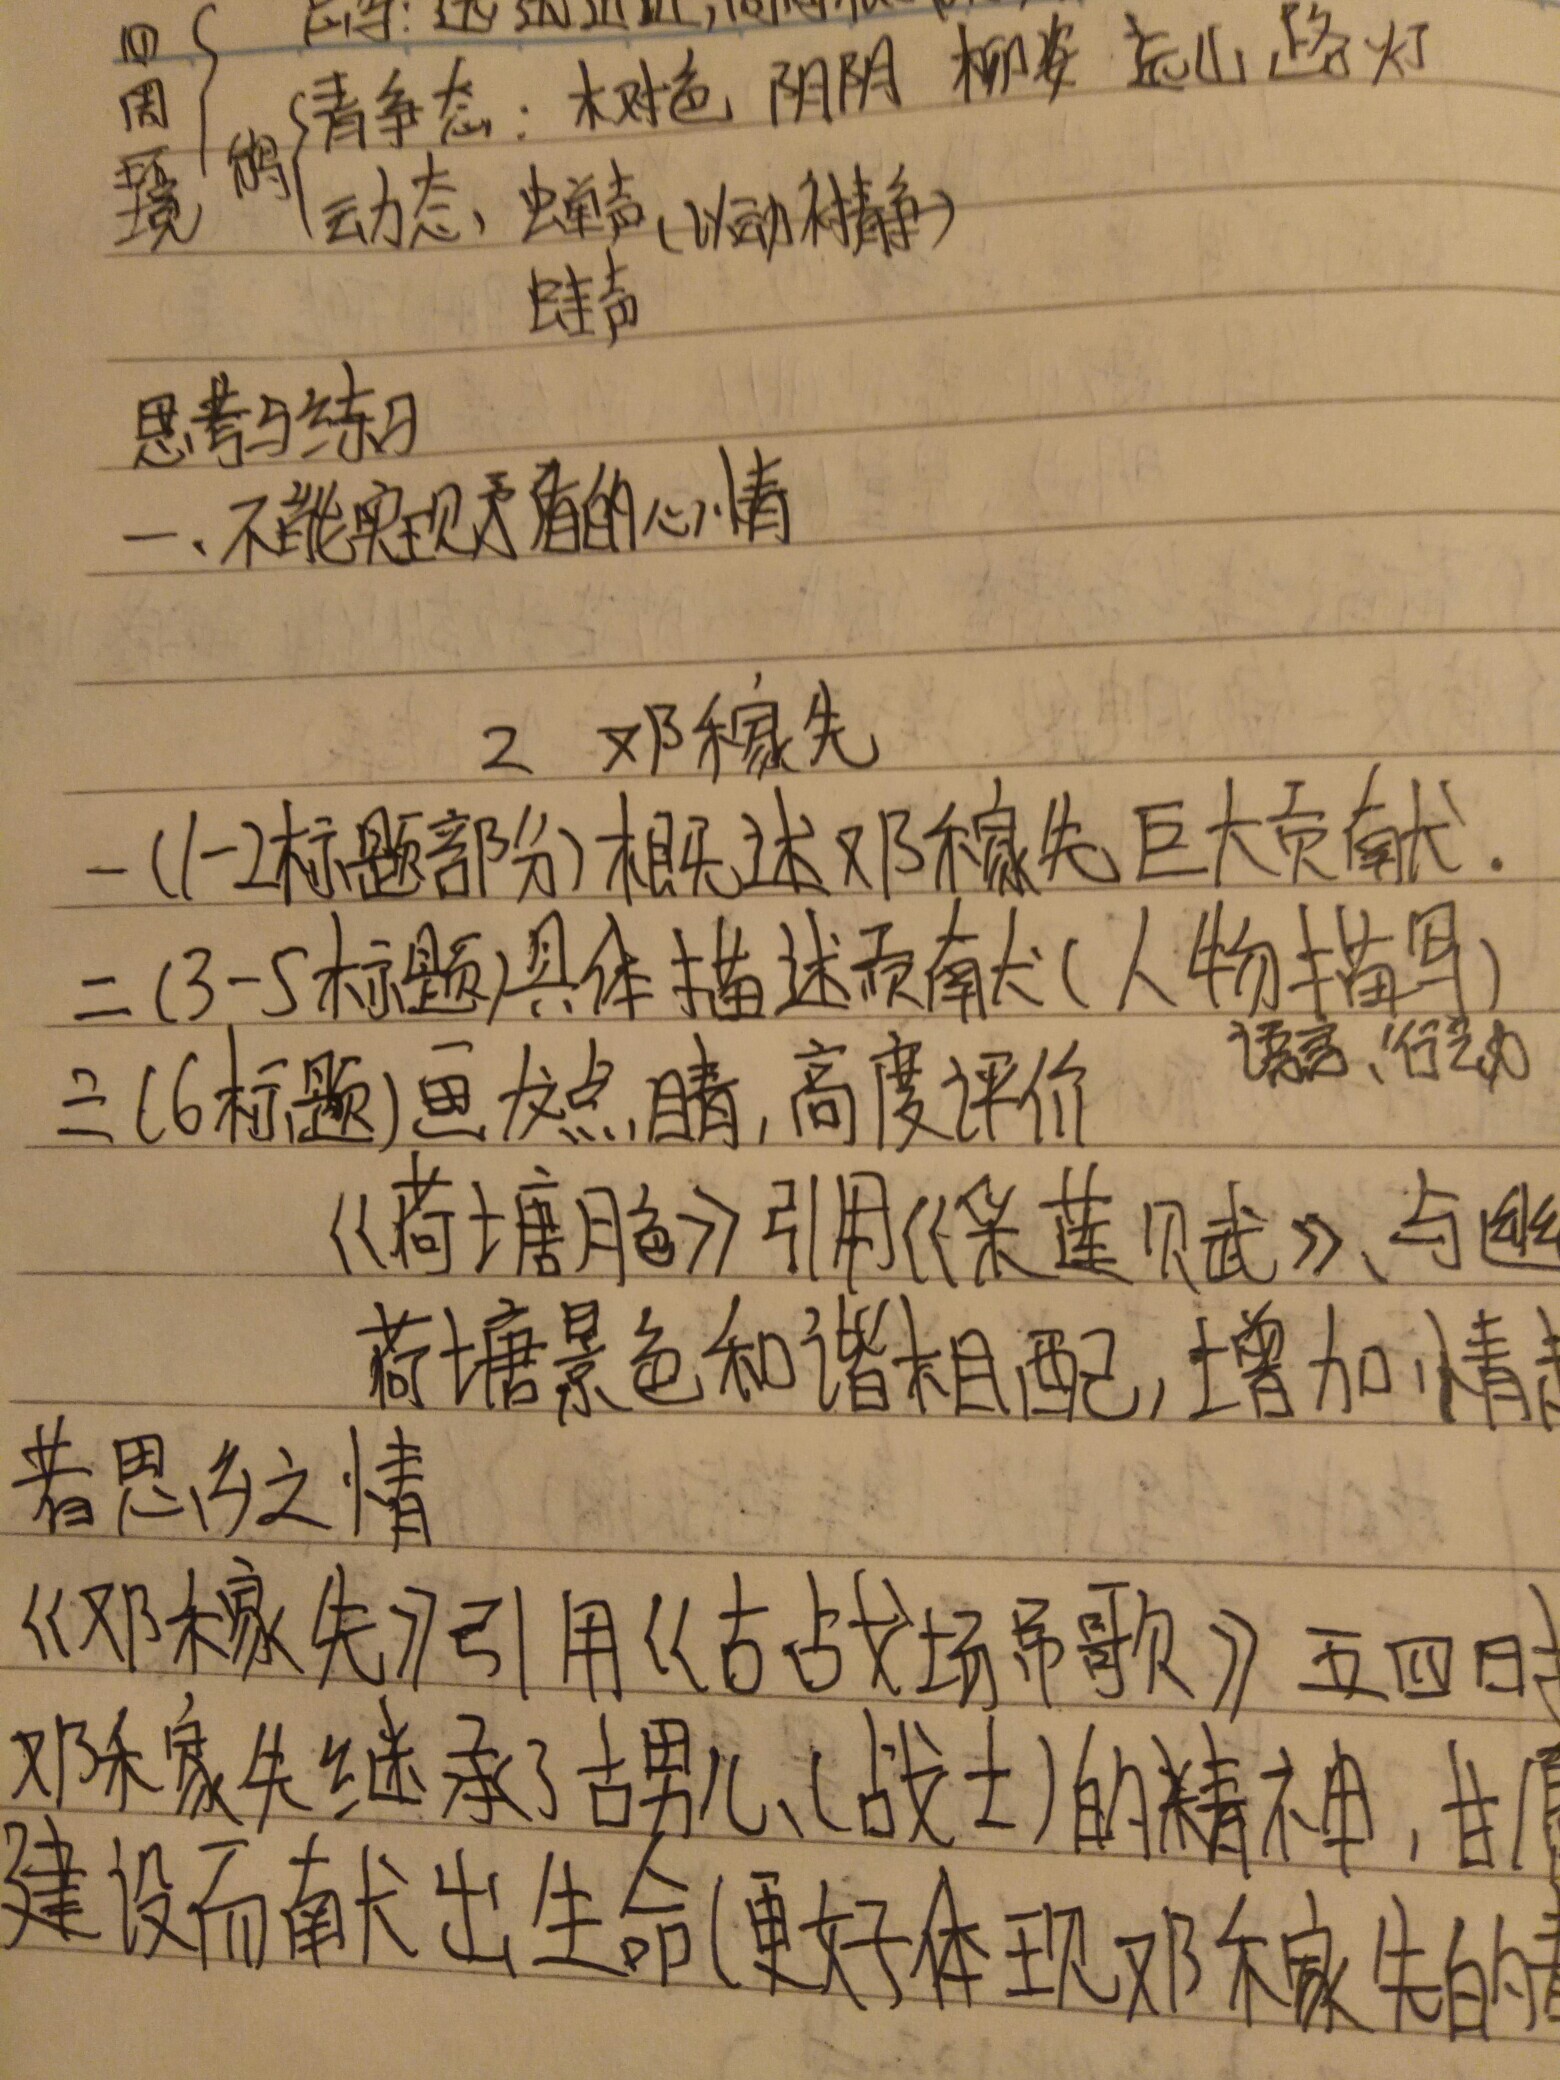 四周环境
静态：树色 阴阴 柳姿 远山 路灯
动态、蝉声（以动衬静）
蛙声
思考与练习
一、不能实现矛盾的心情
2 邓稼先
一（1-2标题部分）概述邓稼先巨大贡献．
二（3-5标题）具体描述贡献（人物描写）
语言、行动
三（6标题）画龙点睛，高度评价
《荷塘月色》引用《采莲赋》、与幽
荷塘景色和谐相配，增加情
着思乡之情
《邓稼先》引用《古战场吊歌》五四时
邓稼先继承了古男儿、（战士）的精神，甘愿
建设而献出生命（更好体现邓稼先的